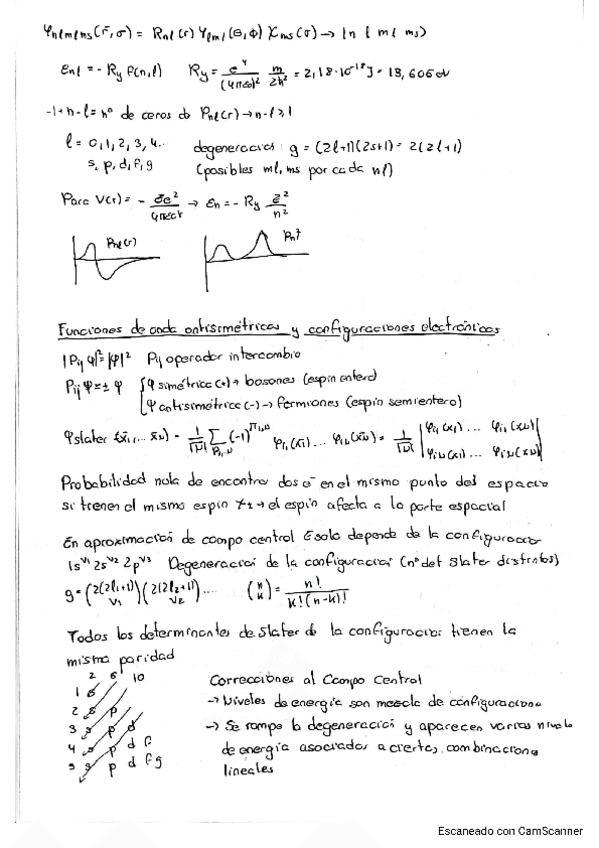 φnlmlms(r̄,σ) = Rnl(r) Ylml(θ,ϕ) Xms(σ) → |n l ml ms⟩
Enl = - Ry f(n,l)   Ry = e⁴/(4πε0)² m/2ħ² = 2,18·10⁻¹⁸ J = 13,606 eV
-1+n-l = nº de ceros de Pnl(r) → n-l ≥ 1
l = 0,1,2,3,4..   degeneración: g = (2l+1)(2s+1) = 2(2l+1)
s, p, d, f, g   (posibles ml, ms por cada nl)
Para V(r) = - Ze²/4πε0r → En = - Ry Z²/n²
Pnl(r)
Funciones de onda antisimétricas y configuraciones electrónicas
|Pij φ|² = |φ|²   Pij operador intercambio
Pij Ψ = ± φ   φ simétrica (+) → bosones (espin entero)
φ antisimétrica (-) → fermiones (espin semientero)
φslater (x̄1,... x̄N) = 1/√N! Σ (-1)^Π1,N φi1(x̄1) ... φiN(x̄N) = 1/√N! |φi1(x1) ... φi1(xN)|
|φiN(x1) ... φiN(xN)|
Probabilidad nula de encontrar dos e⁻ en el mismo punto del espacio
si tienen el mismo espin → el espin afecta a la parte espacial
En aproximación de campo central E solo depende de la configuración
1s^v1 2s^v2 2p^v3   Degeneración de la configuración (nº det Slater distintos)
g = (2(2l1+1) v1)(2(2l2+1) v2) ....   (n k) = n!/k!(n-k)!
Todos los determinantes de Slater de la configuración tienen la
misma paridad
2 6 10   Correcciones al Campo Central
1 s   → Niveles de energía son mezcla de configuracione
2 s p
3 s p d   → Se rompe la degeneración y aparecen varios nivele
4 s p d f   de energía asociados a ciertas combinacione
5 s p d f g   lineales
Escaneado con CamScanner